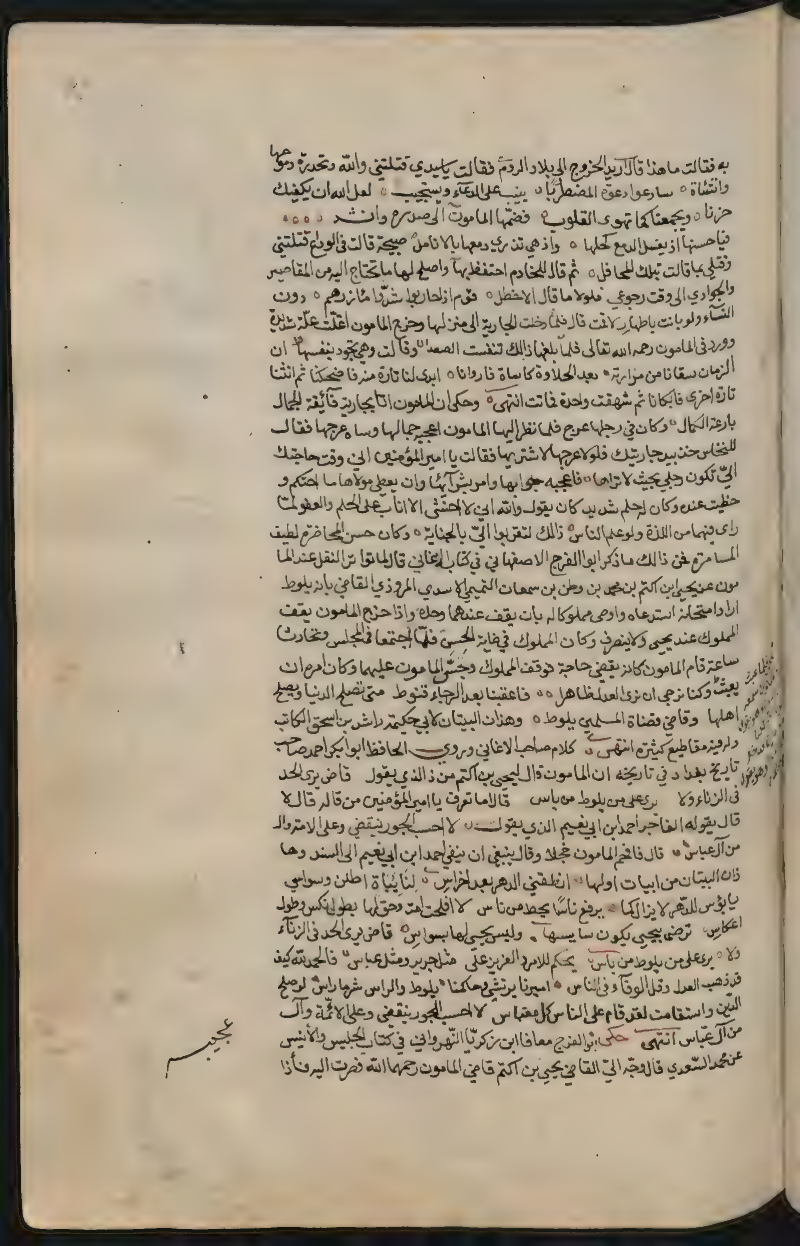 به فقالت ما هذا قال اريد الخروج الى بلاد الروم فقالت يا سيدي قتلتني والله وتحدرت دموعها
وانشأت سادعوا دعوة المضطر ربا يثيب على الدعاء ويستجيب لعل الله ان يكفيك
حزنا ويجمعنا كما تهوى القلوب فضمها المامون الى صدره وانشد
فيا حسنها اذ يغسل الدمع كحلها واذ هي تذري دمعها بالانامل صبيحة قالت في الوداع قتلتني
وقتلي بما قالت بتلك المحافل ثم قال للخادم احتفظ بها واصلح لها ما تحتاج اليه من المقاصير
والجواري الى وقت رجوعي فلولا ما قال الاخطل قوم اذا حاربوا شدوا مأزرهم دون
النساء ولو باتت باطهار لاقت قال فلما دخلت الجارية الى منزلها وخرج المامون اعتلت علة شديدة
وورد نعي المامون رحمه الله تعالى فلما بلغها ذالك تنفست الصعدا وقالت وهي تجود بنفسها ان
الزمان سقانا من مرارته بعد الحلاوة كاسات فاروانا ابدى لنا تارة منه فاضحكنا ثم انثنا
تارة اخرى فابكانا ثم شهقت واحدة فماتت انتهى وحكى ان المامون اتا بجارية فائقة الجمال
بارعة الكمال وكان في رجلها عرج فلما نظر اليها المامون اعجبه جمالها وساه عرجها فقال
للنخاس خذ بيد جاريتك فلولا عرجها لاشتريها فقالت يا امير المؤمنين اني وقت حاجتك
الي تكون رجلي بحيث لا تراها فاعجبه جوابها وامر بشرآئها وان يعطى مولاها ما احتكم و
حظيت عنده وكان له حلم شديد كان يقول والله اني لاخشى الا اثاب على الحلم والعفو لما
راى فيهما من اللذة ولو علم الناس ذالك لتقربوا الي بالجناية وكان حسن المحاضرة لطيف
المسامرة فمن ذالك ما ذكر ابو الفرج الاصفهاني في كتاب الاغاني قال لما تواتر النقل عند الما
مون عن يحيى ابن اكثم بن محمد بن وطن بن سمعان التميمي الاسدي المروزي القاضي بانه يلوط
اراد امتحانه استدعاه واوصى مملوكا له بان يقف عندهما وحده واذا خرج المامون يقف
المملوك عند يحيى ولا ينصرف وكان المملوك في غاية الحسن فلما اجتمعا في المجلس وتحادثا
ساعة قام المامون كانه يقضي حاجة فوقف المملوك وجس المامون عليهما وكان امره ان
يعبث وكنا نرجي ان نرى العدل ظاهرا فاعقبنا بعد الرجاء قنوط متى تصلح الدنيا ويصلح
اهلها وقاضي قضاة المسلمين يلوط وهذان البيتان لابي حكيمة راشد بن اسحق الكاتب
وله فيه مقاطيع كثيرة انتهى كلام صاحب الاغاني وروى الحافظ ابو بكر احمد صاحب
تاريخ بغداد في تاريخه ان المامون قال ليحيى بن اكثم من ذا الذي يقول قاض يرى الحد
في الزناء ولا يرى على من يلوط من باس قال اما تعرف يا امير المؤمنين من قاله قال لا
قال يقوله الفاجر احمد ابن ابي نعيم الذي يقول لا احسب الجور ينقضي وعلى الامة وال
من آل عباس قال فافحم المامون خجلا وقال ينبغي ان ينفى احمد ابن ابي نعيم الى السند وها
ذان البيتان من ابيات اولها انطقني الدهر بعد اخراس لنائبات اطلن وسواسي
يا بؤس للدهر لا يزال كما يرفع ناسا يحط من ناس لا افلحت امة وحق لها بطول نكس وطول
اتعاس ترضى بيحيى يكون سايسها وليس يحيى لها بسواس قاض يرى الحد في الزناء
ولا يرى على من يلوط من باس يحكم للامرد العزيز على مثل جرير ومثل عباس فالحمد لله كيف
قد ذهب العدل وقل الوفاء في الناس اميرنا يرتشي وحاكمنا يلوط والراس شر ما راس لو صلح
الدين واستقامت لقد قام على الناس كل مقياس لا احسب الجور ينقضي وعلى الائمة وال
من آل عباس انتهى حكى ابو الفرج معافا ابن زكريا النهرواني في كتاب الجليس والانيس
عن محمد السعدي قال وجه الي القاضي يحيى بن اكثم قاضي المامون رحمهما الله فصرت اليه فأذا
عجيب